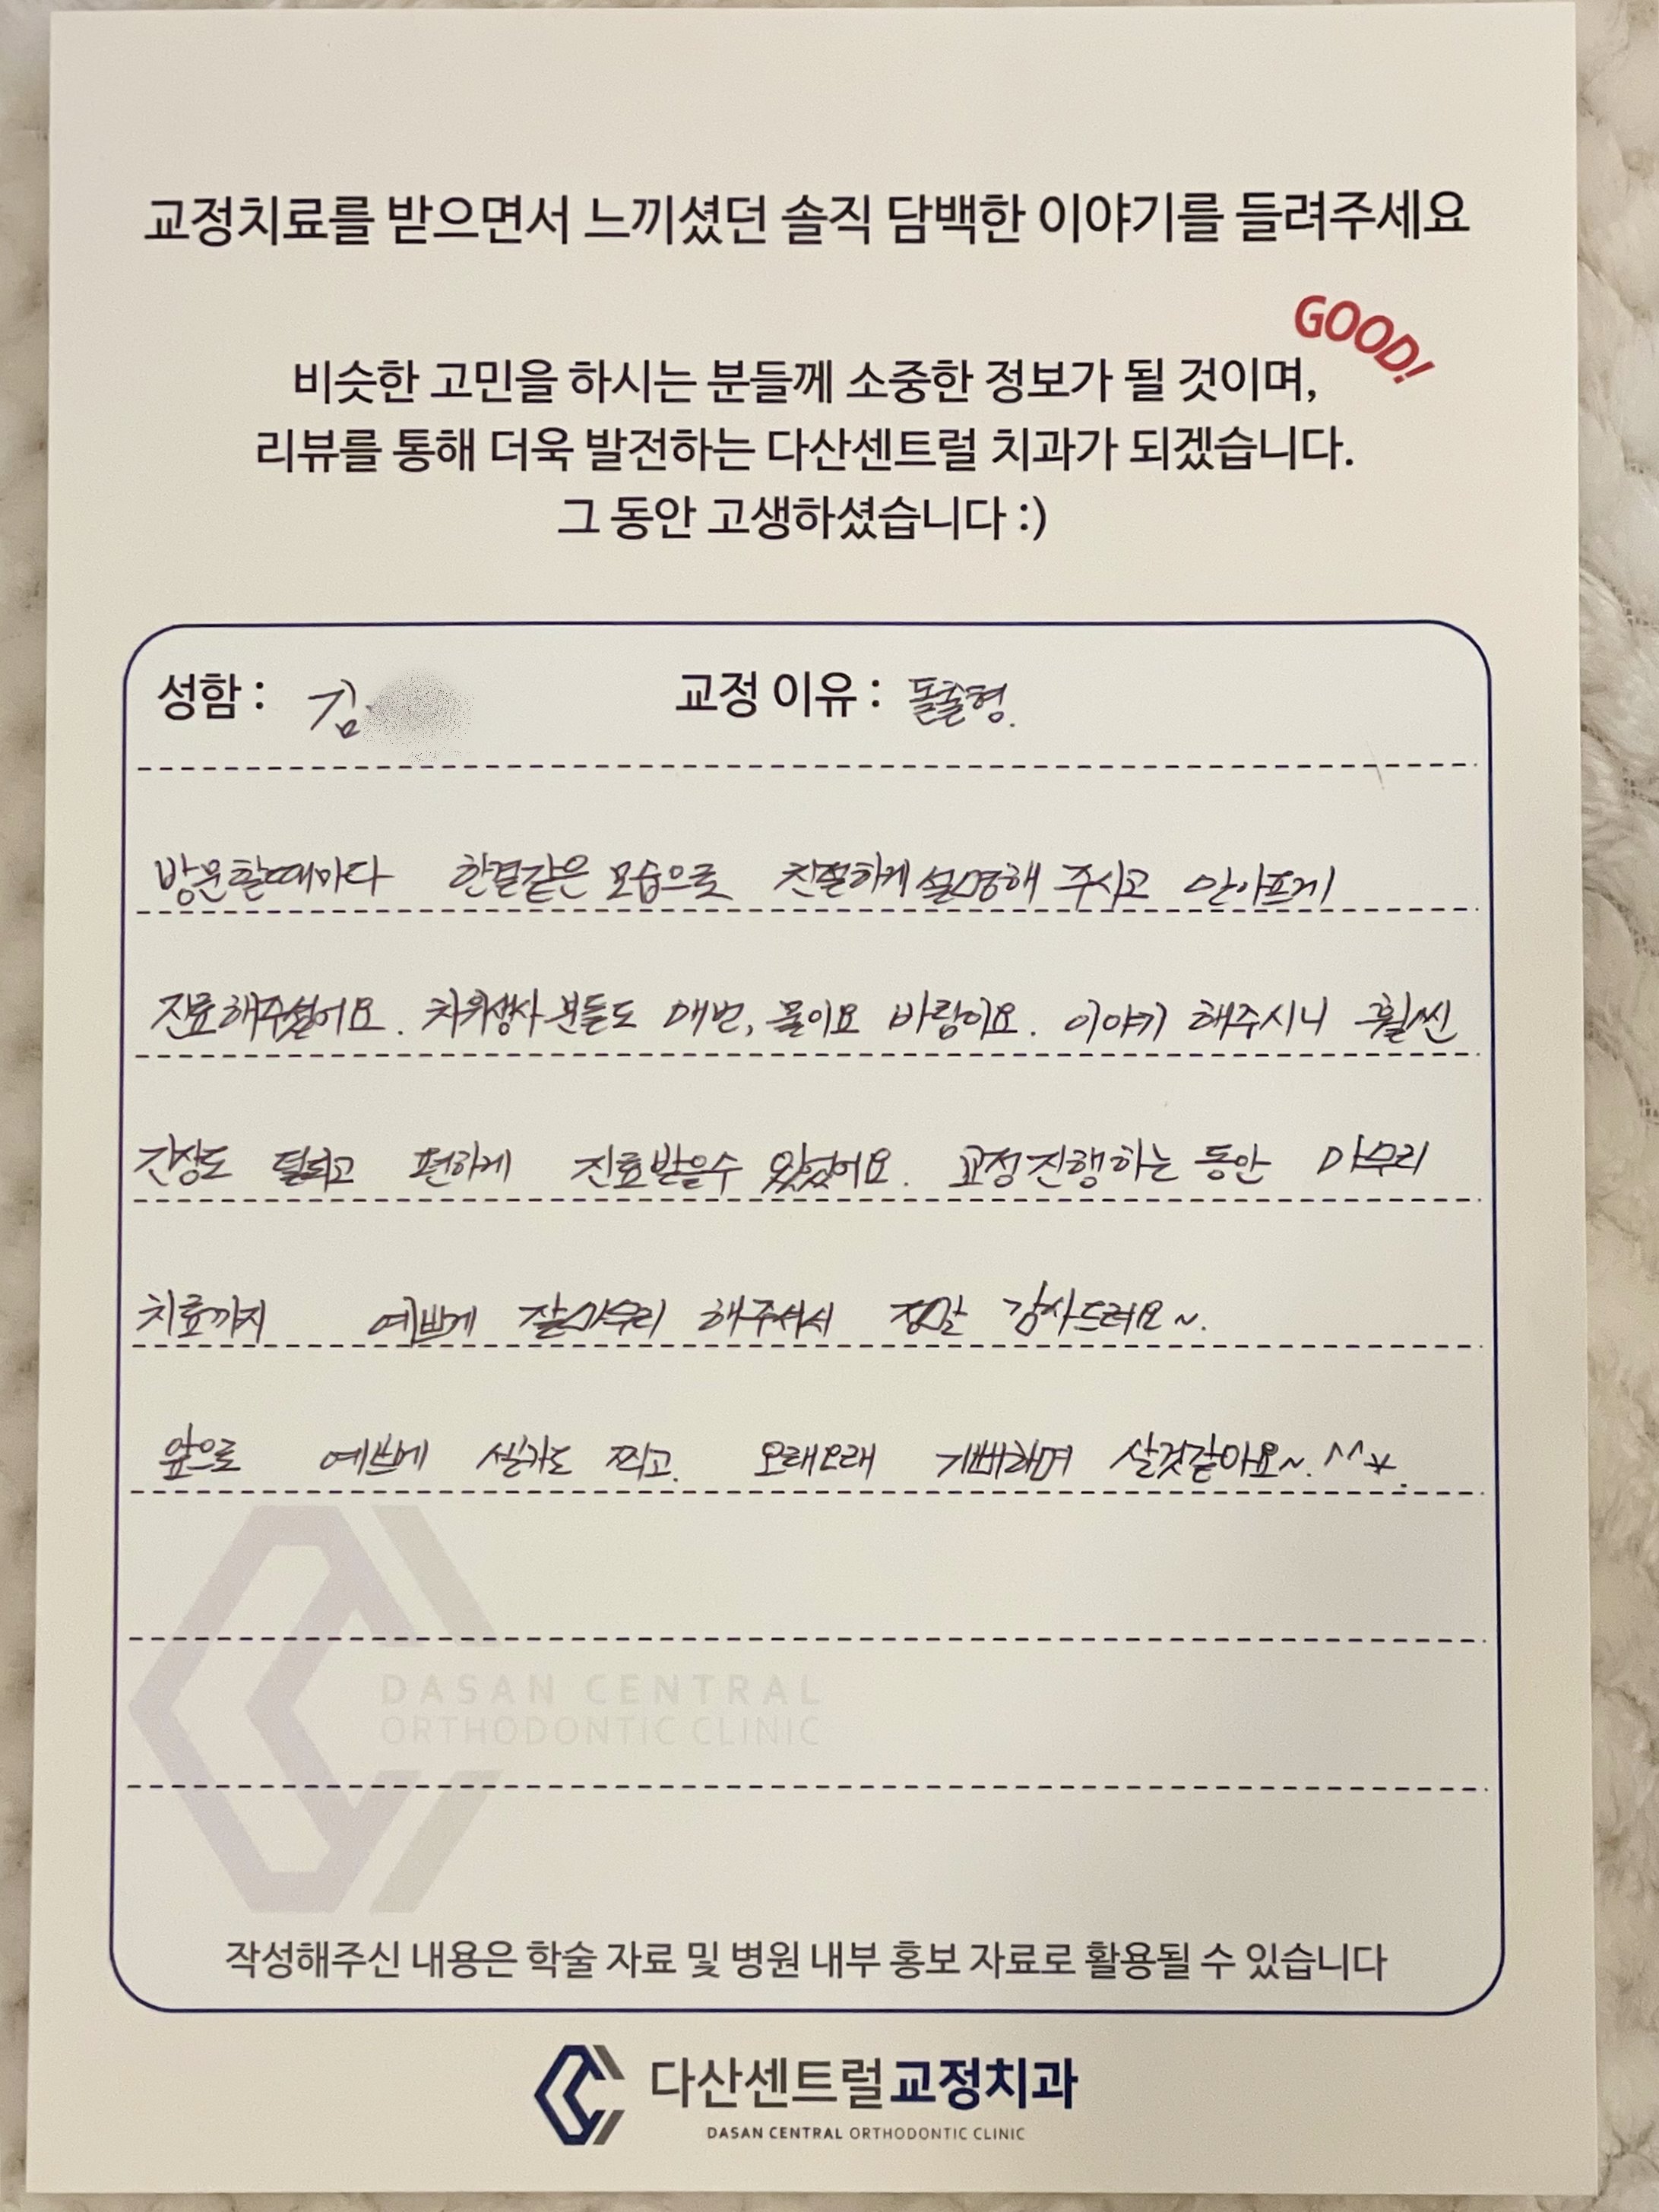 교정치료를 받으면서 느끼셨던 솔직 담백한 이야기를 들려주세요
GOOD!
비슷한 고민을 하시는 분들께 소중한 정보가 될 것이며,
리뷰를 통해 더욱 발전하는 다산센트럴 치과가 되겠습니다.
그 동안 고생하셨습니다 :)
성함 : 김 교정 이유 : 돌출형.
방문할때마다 한결같은 모습으로 친절하게 설명해 주시고 안아프게
진료해주셨어요. 치위생사 분들도 매번, 물이요 바람이요. 이야기 해주시니 훨씬
긴장도 덜되고 편하게 진료받을수 있었어요. 교정진행하는 동안 마무리
치료까지 예쁘게 잘마무리 해주셔서 정말 감사드려요~.
앞으로 예쁘게 셀카도 찍고. 오래오래 기뻐하며 살것같아요~. ^^*.
DASAN CENTRAL
ORTHODONTIC CLINIC
작성해주신 내용은 학술 자료 및 병원 내부 홍보 자료로 활용될 수 있습니다
다산센트럴교정치과
DASAN CENTRAL ORTHODONTIC CLINIC